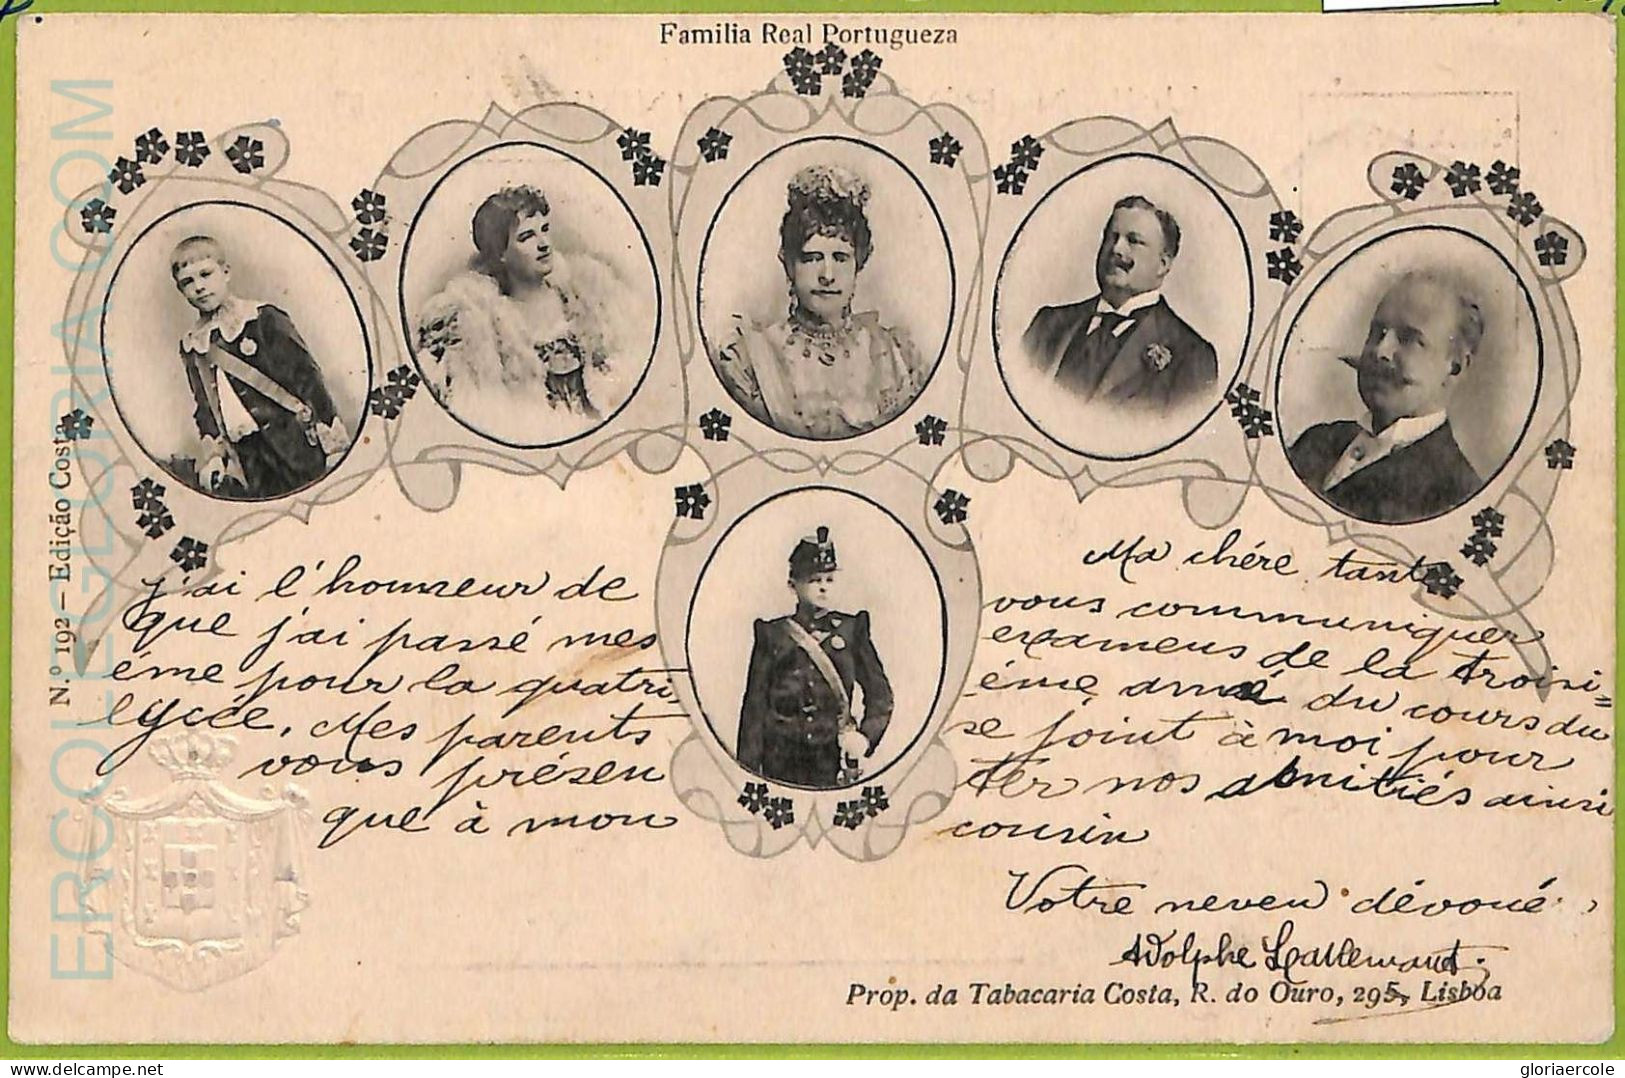 Familia Real Portugueza
N.º 192 — Edição Costa
Ma chére tante
j'ai l'honneur de vous communiquer
que j'ai passé mes examens de la troisi=
éme pour la quatri, éme année du cours du
lycée. Mes parents se joint à moi pour
vous présen ter nos amnitiés ainsi
que à mon cousin
Votre neveu dévoué,
Adolphe Lallemant
Prop. da Tabacaria Costa, R. do Ouro, 295, Lisboa
ERCOLEGLORIA.COM
delcampe.net
gloriaercole